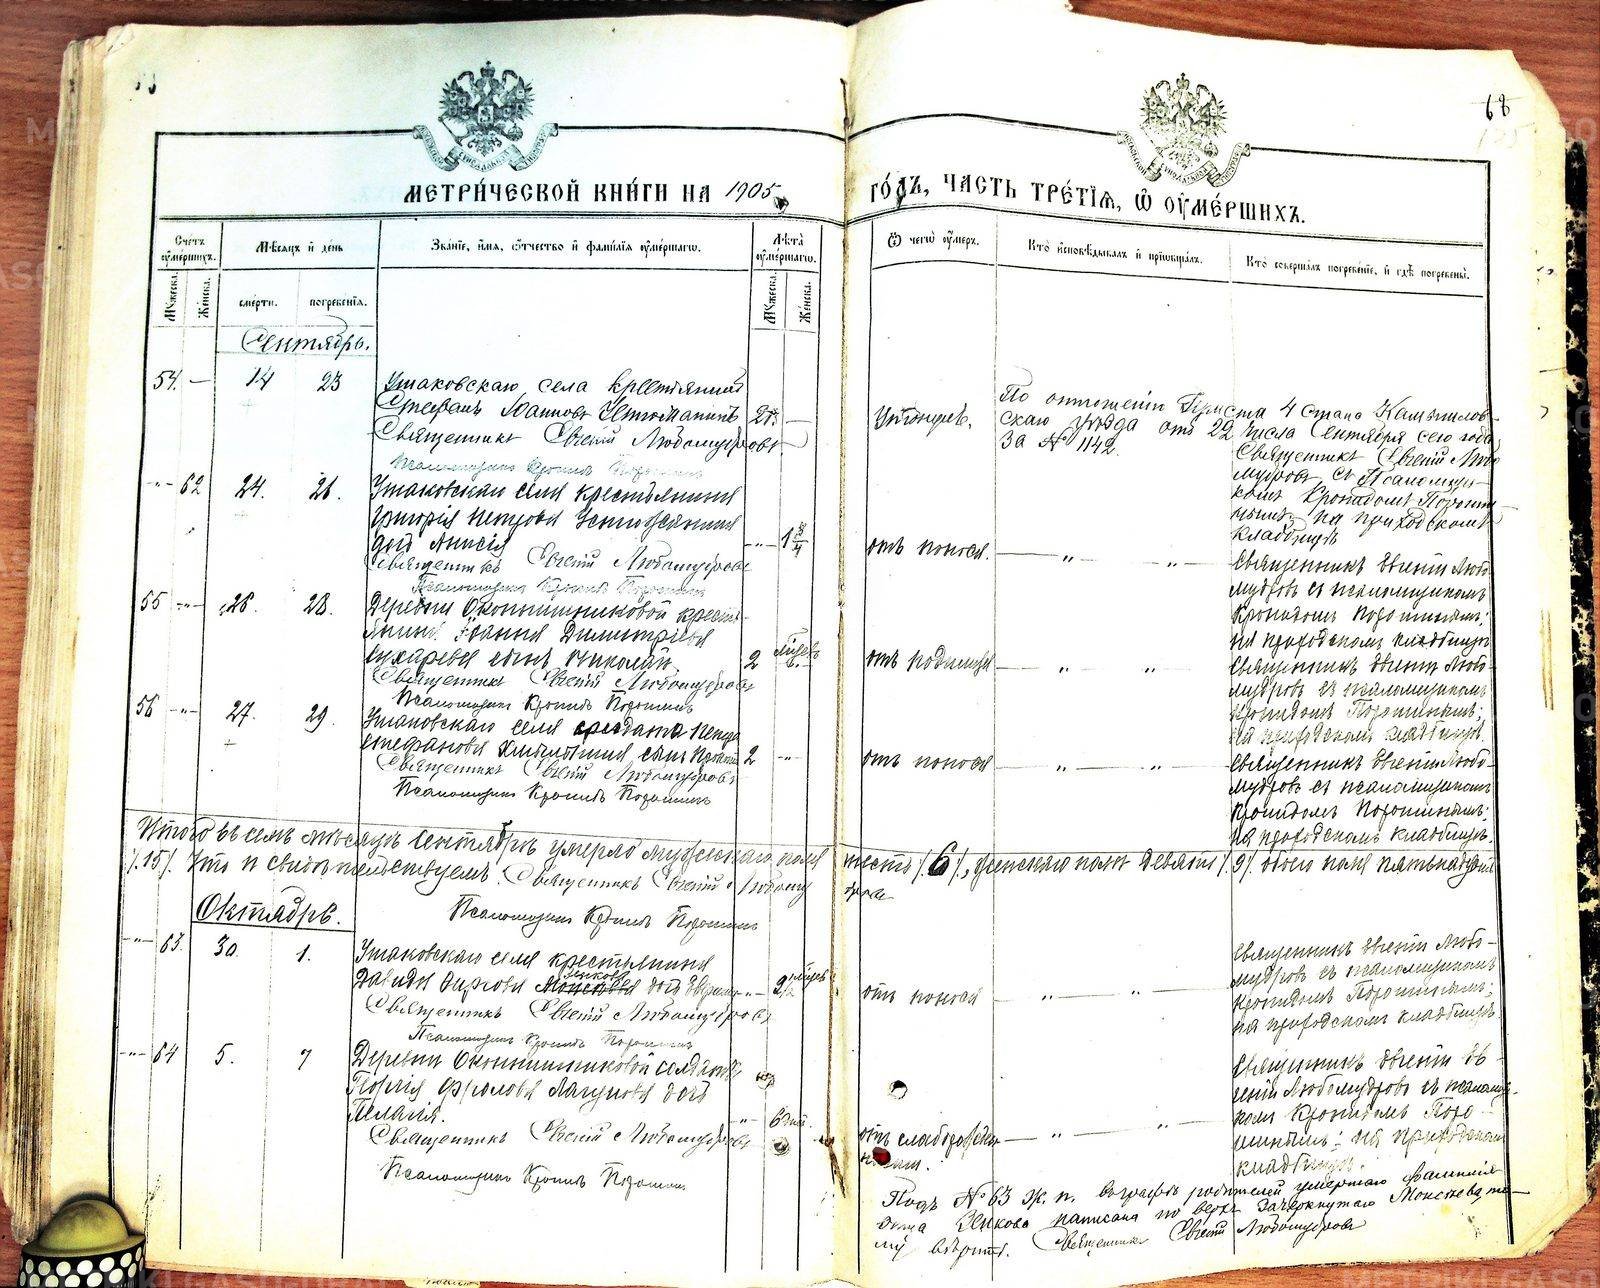 68
МЕТРИ́ЧЕСКОЙ КНИ́ГИ НА 1905 ГО́ДЪ, ЧАСТЬ ТРЕ́ТІѦ, Ѡ҆ ОУ҆МЕ́РШИХЪ.
Счетъ оумершихъ.
Мѣсяцъ и день
Званіе, имя, отчество и фамилія оумершагѡ.
Лѣта оумершагѡ.
Ѿ чегѡ оумеръ.
Кто исповѣдывалъ и пріѡбщалъ.
Кто совершалъ погребеніе, и гдѣ погребены.
Мужеска.
Женска.
смерти.
погребенія.
Мужеска.
Женска.
Сентябрь.
54. — 14 23
Ушаковскаго села крестьянинъ
Стефанъ Іоанновъ
Священникъ Евгеній Любомудровъ
Псаломщикъ Кронидъ Порошинъ
По отношенію Приста 4 стана Камышлов-
скаго уѣзда отъ 22 числа Сентября сего года
за № 1142.
Священникъ Евгеній Любо
мудровъ съ Псаломщи-
комъ Кронидомъ Пороши
нымъ; на приходскомъ
кладбищѣ
-"- 62 24. 26.
Ушаковскаго села крестьянина
Григорія Петрова Устюжанина
дочь Анисія
Священникъ Евгеній Любомудровъ
Псаломщикъ Кронидъ Порошинъ
-"- 1 3/4
отъ поноса. — " — " —
Священникъ Евгеній Любо-
мудровъ съ псаломщикомъ
Кронидомъ Порошинымъ;
на приходскомъ кладбищѣ
55 -"- 26. 28.
Деревни Оконишниковой кресть-
янина Іоанна Димитріева
Сухарева сынъ Николай.
Священникъ Евгеній Любомудровъ
Псаломщикъ Кронидъ Порошинъ
2 мѣсяц
отъ родимца — " — " —
Священникъ Евгеній Любо-
мудровъ съ псаломщикомъ
Кронидомъ Порошинымъ;
на приходскомъ кладбищѣ.
56 -"- 27. 29.
Ушаковскаго села солдата Петра
Стефанова сынъ
Священникъ Евгеній Любомудровъ
Псаломщикъ Кронидъ Порошинъ
2 -"-
отъ поноса — " — " —
Священникъ Евгеній Любо-
мудровъ съ псаломщикомъ
Кронидомъ Порошинымъ;
на приходскомъ кладбищѣ.
Итого въ семъ мѣсяцѣ Сентябрѣ умерло мужескаго пола шесть /6/, женскаго пола девять /9/ обоего пола пятьнадцать
/15/. Что и свидѣтельствуемъ. Священникъ Евгеній Любому
дровъ
Псаломщикъ Кронидъ Порошинъ
Октябрь.
-"- 63. 30. 1.
Ушаковскаго села крестьянина
Зенкова
Давида Сергѣева Моисѣева дочь
Священникъ Евгеній Любомудровъ
Псаломщикъ Кронидъ Порошинъ
-"- 2 1/2 мѣсяц
отъ поноса — " — " —
Священникъ Евгеній Любо-
мудровъ съ псаломщикомъ
Кронидомъ Порошинымъ;
на приходскомъ кладбищѣ.
-"- 64 5. 7
Деревни Оконишниковой солдата
Георгія Фролова Лагунова дочь
Пелагія.
Священникъ Евгеній Любомудровъ
Псаломщикъ Кронидъ Порошинъ
-"- 6
отъ слаборожден
— " — " —
Священникъ Евгеній Ев-
геній Любомудровъ съ псаломщи-
комъ Кронидомъ Поро-
шинымъ; на приходскомъ
кладбищѣ.
Подъ № 63 ж. п. въ графѣ родителей умершаго фамилія
отца Зенкова написана по верхъ зачеркнутаго Моисѣева, по-
му вѣрить. Священникъ Евгеній Любомудровъ